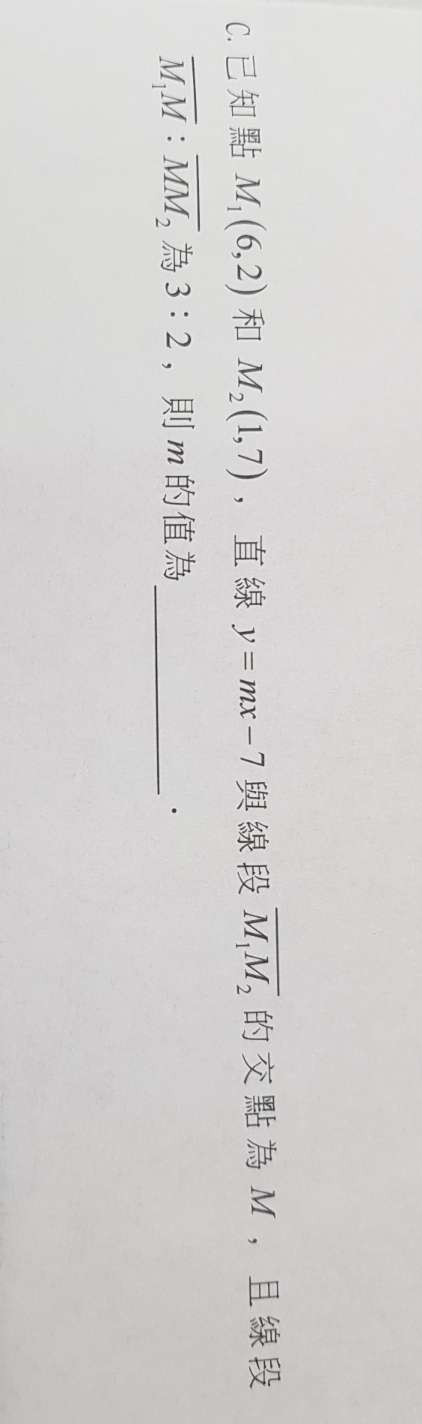 C. 已知點 M₁(6,2) 和 M₂(1,7)，直線 y = mx − 7 與線段 M̅₁̅M̅₂̅ 的交點為 M，且線段
M̅₁̅M̅ : M̅M̅₂̅ 為 3 : 2，則 m 的值為 ________.